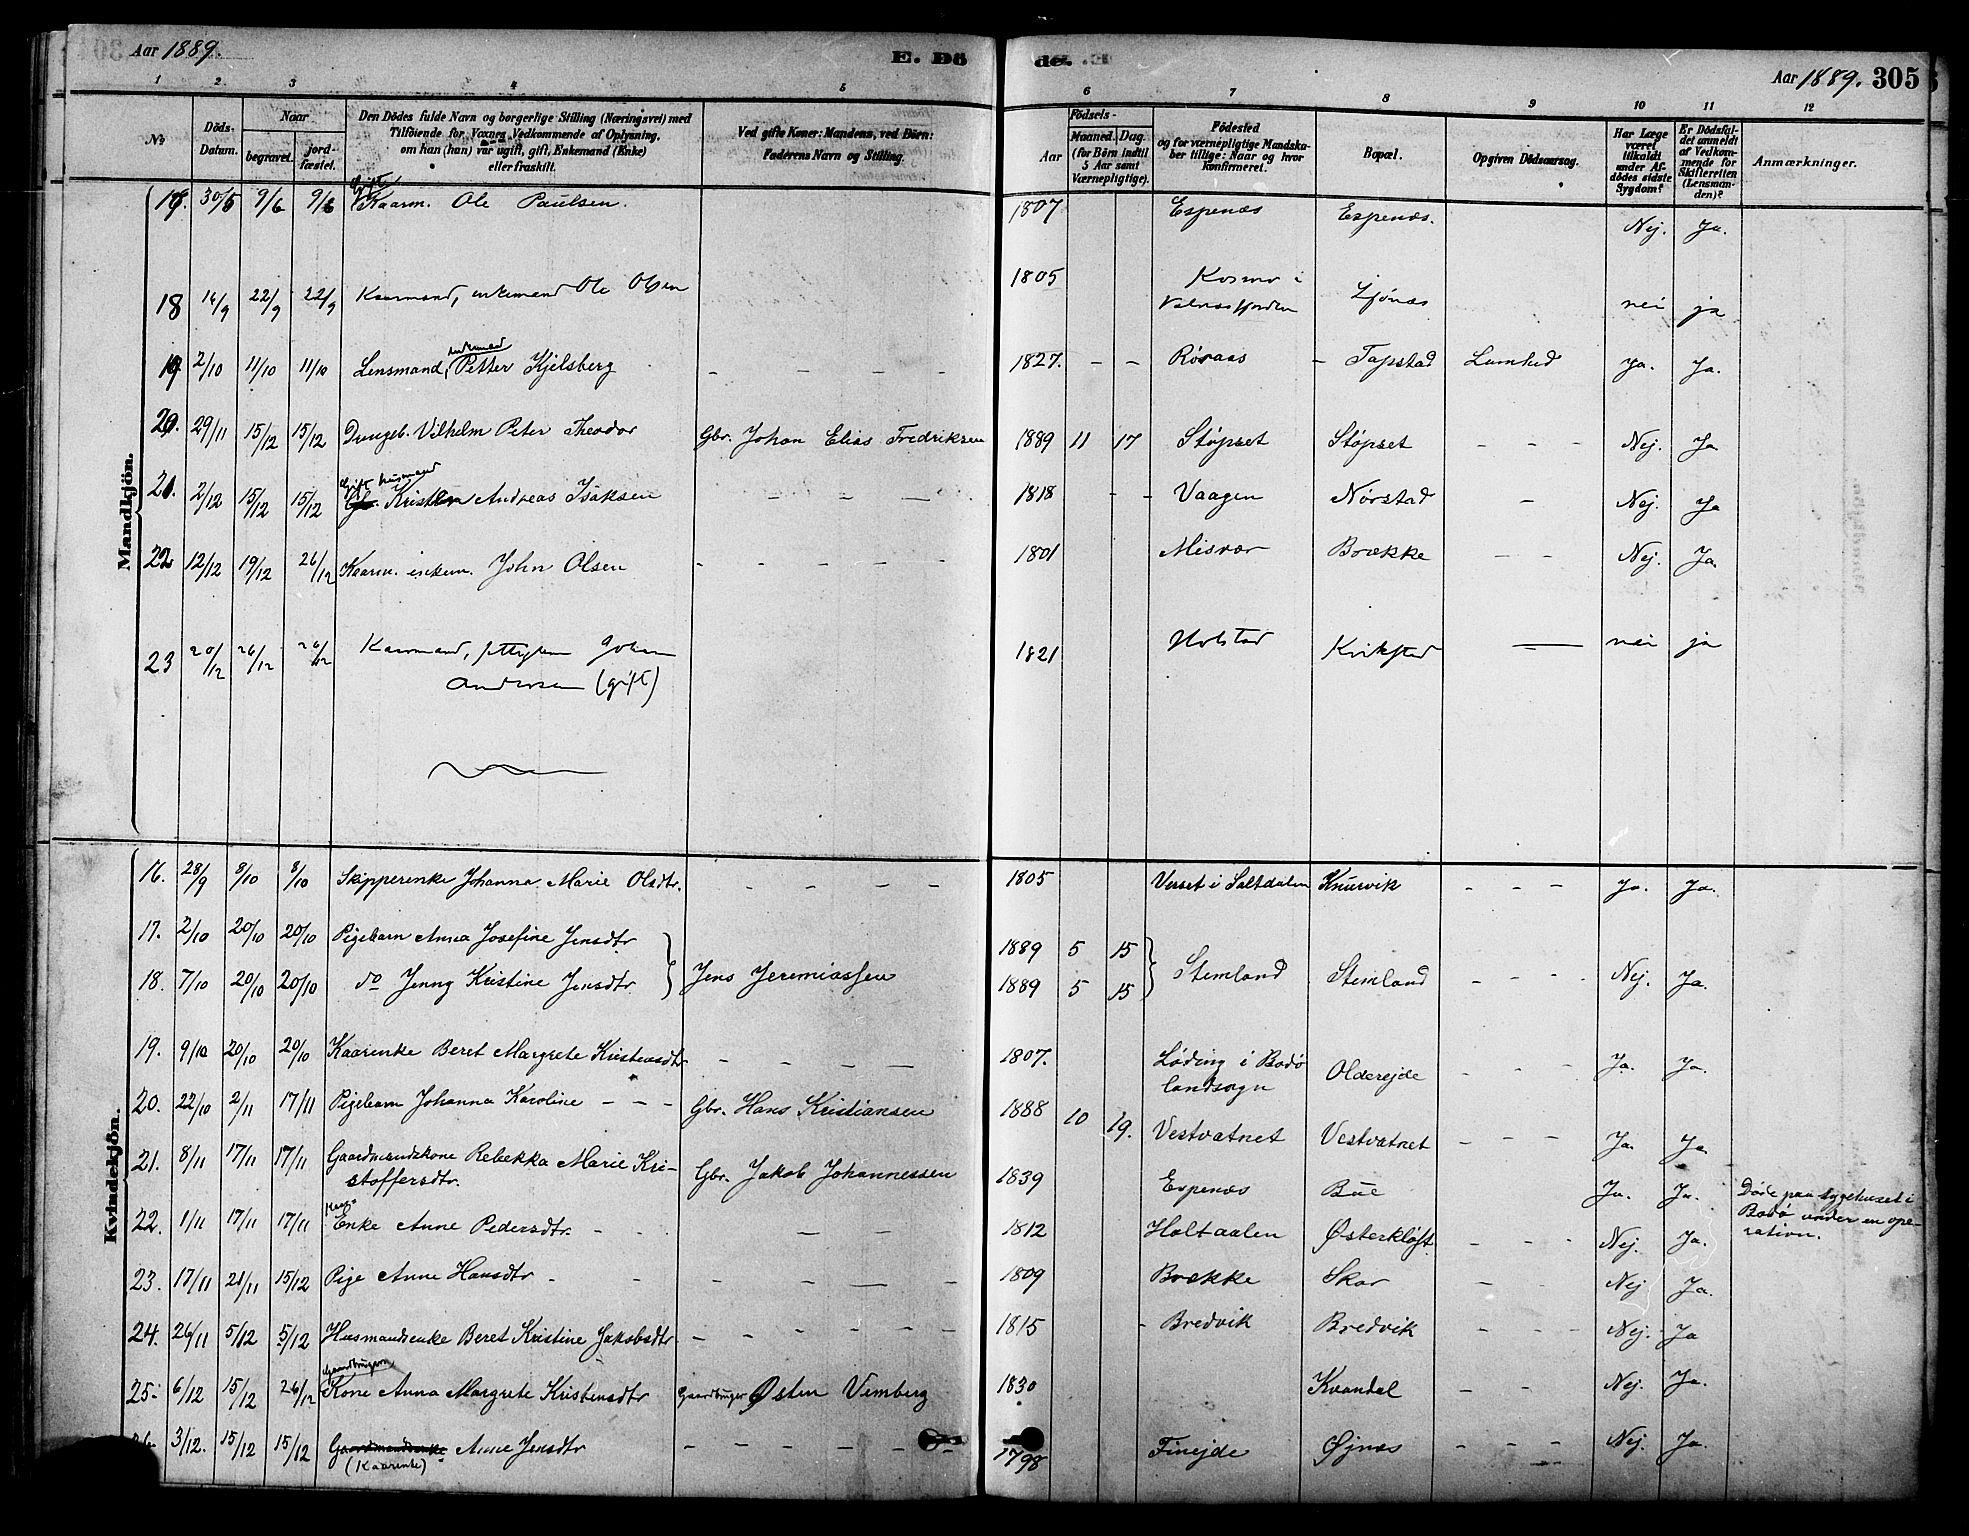 Aar 1889.
E. Dö
de.
Aar 1889. 305
1 2. 3 4 5 6 7 8 9 10 11 12
No
Döds-Datum.
Naar
begravet.
jord-fæstet.
Den Dödes fulde Navn og borgerlige Stilling (Næringsvei) med
Tilföiende for Voxnes Vedkommende af Oplysning,
om han (hun) var ugift, gift, Enkemand (Enke)
eller fraskilt.
Ved gifte Koner: Mandens, ved Börn:
Faderens Navn og Stilling.
Födsels-
Aar
Maaned. Dag.
(for Börn indtil
5 Aar samt
Værnepligtige).
Födested
og for værnepligtige Mandska-
ber tillige: Naar og hvor
konfirmeret.
Bopæl.
Opgiven Dödsaarsag.
Har Læge
været
tilkaldt
under Af-
dödes sidste
Sygdom?
Er Dödsfal-
det anmeldt
af Vedkom-
mende for
Skifteretten
(Lensman-
den)?
Anmærkninger.
Mandkjön.
Gift
17. 30/5 9/6 9/6 Kaarm. Ole Paulsen. 1807 Espenæs Espenæs. Nej. Ja.
18 14/9 22/9 22/9 Kaarmand, enkemand Ole Olsen 1805 Kosmo i Valnæsfjorden Ljønæs nei ja
enkemand
19 2/10 11/10 11/10 Lensmand, Petter Kjelsberg – – – – 1827. – – Røraas – Tapstad Ja. Ja.
20. 29/11 15/12 15/12 Drengeb. Vilhelm Peter Theodor Gbr. Johan Elias Fredriksen 1889 11 17 Støpset Støpset – – – Nej. Ja
Gift husmand
21. 2/12 15/12 15/12 Kristen Andreas Isaksen – – – – 1818 – – Vaagen Nørstad – Nej. Ja
22 12/12 19/12 26/12 Kaarm. enkem. John Olsen – – – – – 1801 Misvær Brække – – Nej. Ja.
23 20/12 26/12 26/12 Kaarmand, Johan
Andersen (gift) 1821 Holstad Kvikstad — nei ja
Kvindekjön.
16. 28/9 8/10 8/10 Skipperenke Johanna Marie Olsdtr. – – – – 1805 Verset i Saltdalen Knurvik – – – Ja. Ja.
17. 2/10 20/10 20/10 Pigebarn Anna Josefine Jensdtr 1889 5 15
18. 7/10 20/10 20/10 do Jenny Kristine Jensdtr. Jens Jeremiassen 1889 5 15 Stemland Stemland – – – Nej. Ja.
19. 9/10 20/10 20/10 Kaarenke Beret Margrete Kristensdtr – – – – 1807. Løding i Bodø
landsogn Olderejde – – – Ja. Ja.
20. 22/10 2/11 17/11 Pigebarn Johanna Karoline – – – Gbr. Hans Kristiansen 1888 10 19. Vestvatnet Vestvatnet – – – Ja. Ja
21. 8/11 17/11 17/11 Gaardmandskone Rebekka Marie Kri-
stoffersdtr. Gbr. Jakob Johannessen 1839 Espenæs Bue Ja. Ja. Døde paa sygehuset i
Bodø under en ope-
ration.
22. 1/11 17/11 17/11 Enke Anne Pedersdtr. – – – – 1812 Holtaalen Østerkløft – – – Nej. Ja.
23. 17/11 21/11 15/12 Pige Anne Hansdtr – – – – – 1809 Brække Skar – – Nej Ja.
24. 26/11 5/12 5/12 Husmandsenke Beret Kristine Jakobsdtr – – – – – 1815 – Bredvik Bredvik – – – Nej. Ja
Gaardbrugers
25. 6/12 15/12 26/12 Kone Anna Margrete Kristensdtr Gaardbruger Østen Vemberg 1830 Kvandal – – Nej. Ja.
3/12. 15/12 15/12 Gaardmandsenke Anne Jensdtr – – – – – – 1798 Finejde Øjnæs – – – Nej. Ja.
(Kaarenke)